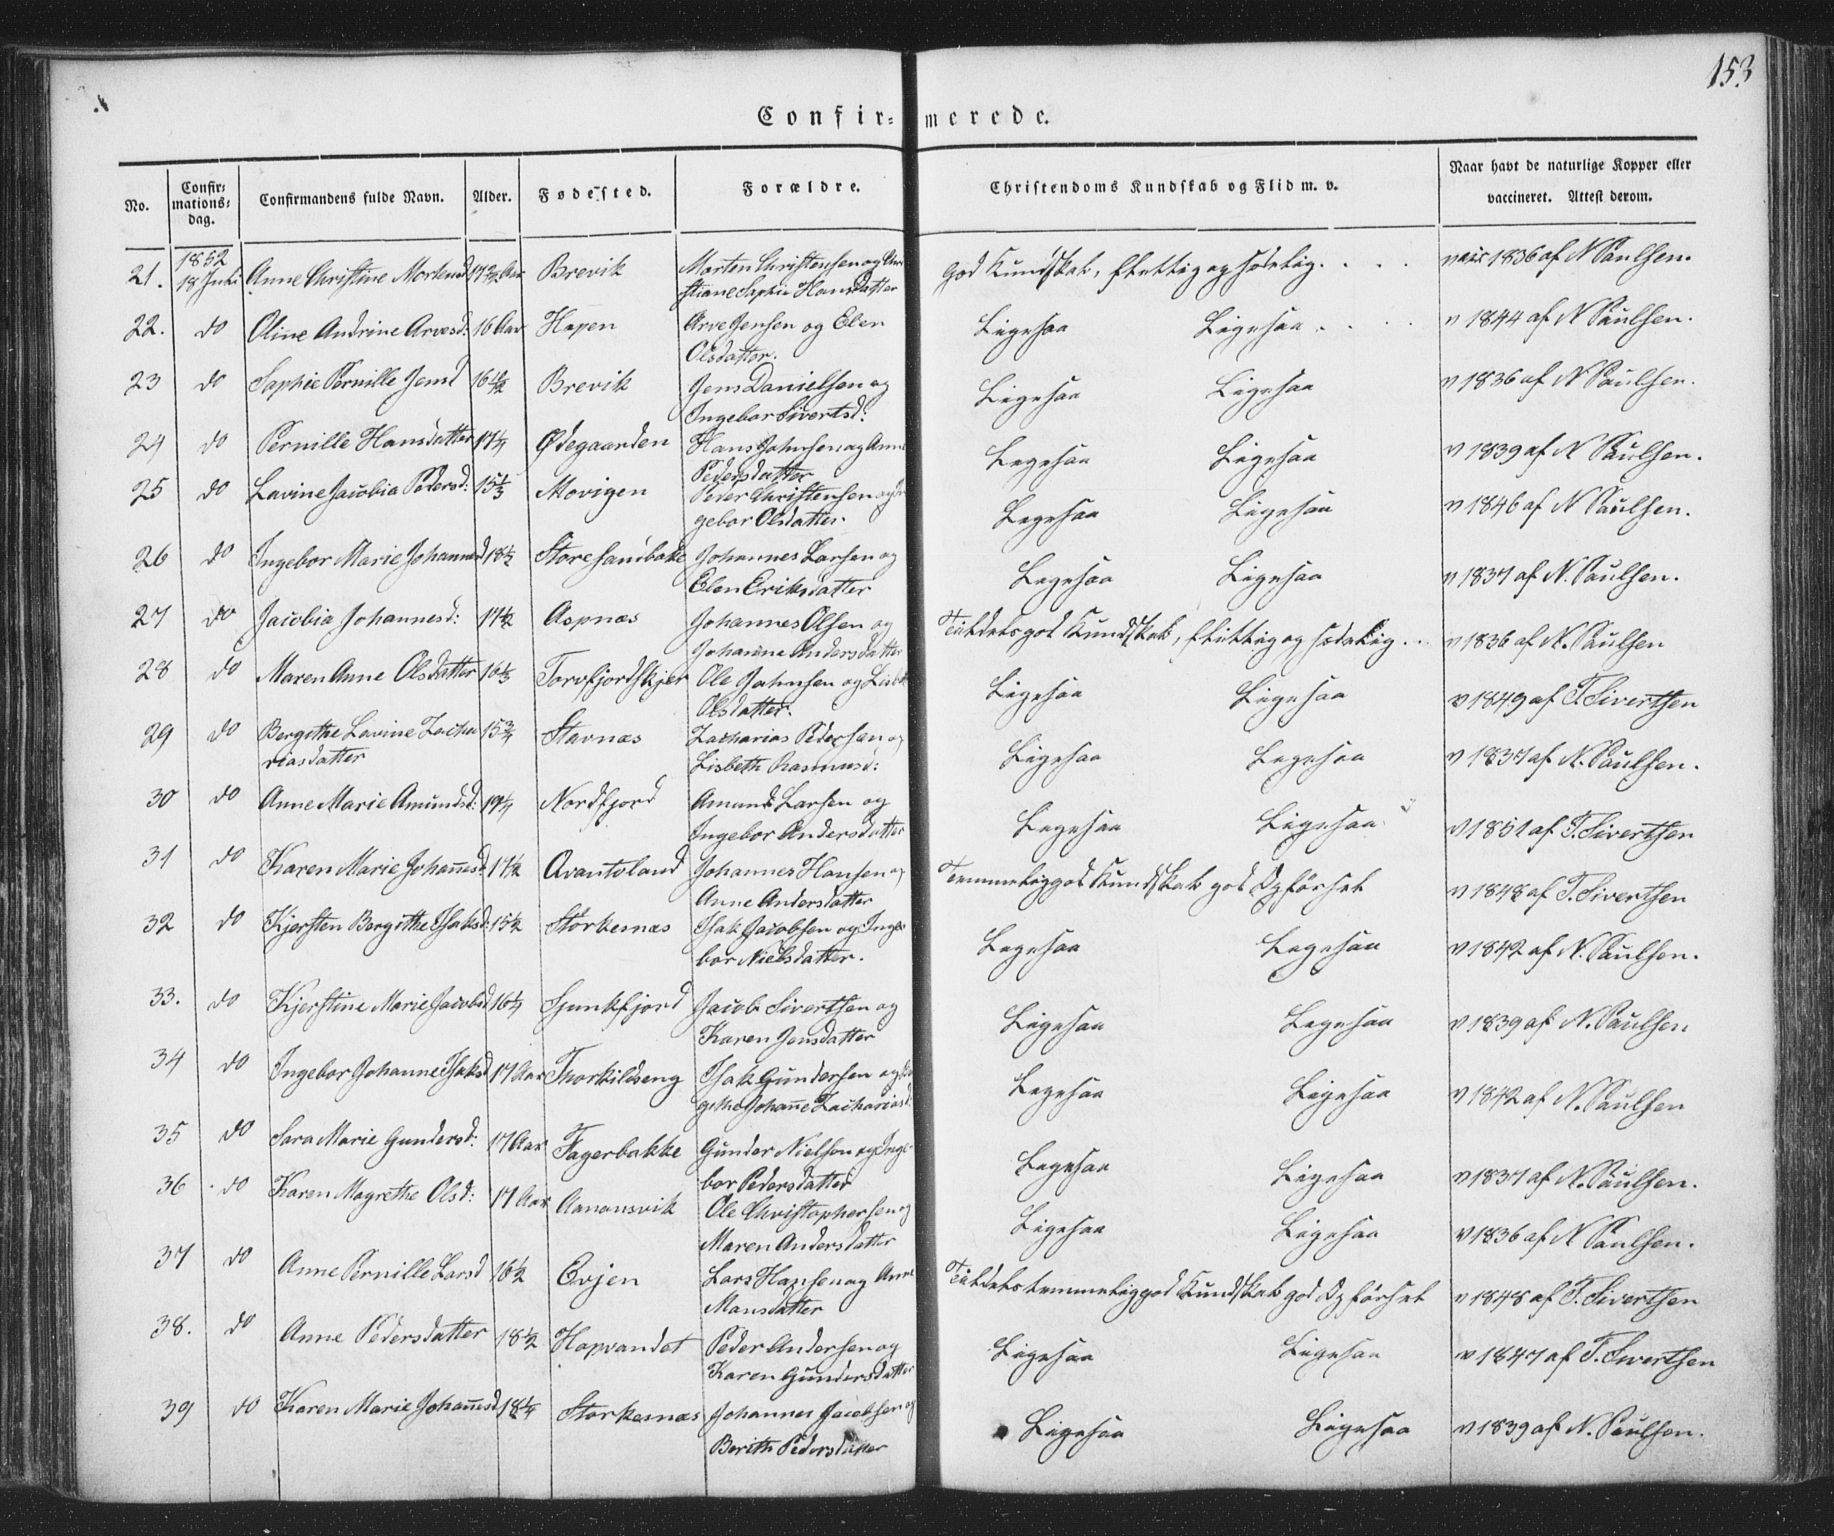 153
Confir= merede.
No. Confir= mations= dag. Confirmandens fulde Navn. Alder. Fødested. Forældre. Christendoms Kundskab og Flid m. v. Naar havt de naturlige Kopper eller vaccineret. Attest derom.
1852
21. 18 Juli Anne Christine Mortensd 17 Aar Brevik Morten Christensen og Chri= god Kundskab, flittig og sædelig. vacc 1836 af N Paulsen.
stiane Sophie Hansdatter
22. do Oline Andrine Arvesd: 16 Aar Hopen Arve Jensen og Elen Ligesaa Ligesaa v 1844 af N Paulsen.
Olsdatter.
23 do Sophie Pernille Jensd 16 1/2 Brevik Jens Danielsen og Ligesaa Ligesaa v 1836 af N Paulsen.
Ingebor Sivertsd:
24 do Pernille Hansdatter 17 1/4 Ødegaarden Hans Johnsen og Anne Ligesaa Ligesaa v 1839 af N Paulsen.
Pedersdatter
25 do Lavine Jacobia Pedersd: 15 1/3 Movigen Peder Christensen og In Ligesaa Ligesaa v 1846 af N Paulsen.
gebor Olsdatter
26 do Ingebor Marie Johannesd 18 1/2 Storesandbakke Johannes Larsen og Ligesaa Ligesaa v 1837 af N. Paulsen.
Elen Eriksdatter
27 do Jacobia Johannesd: 17 1/2 Aspnæs Johannes Olsen og Tildels god Kundskab, flittig og sædelig v 1836 af N. Paulsen
Johanna Andersdatter
28 do Maren Anne Olsdatter 16 1/3 Torvfjordskjer Ole Johnsen og Lisbet Ligesaa Ligesaa v 1849 af T. Sivertsen
Olsdatter.
29 do Bergithe Lavine Zacha 15 3/4 Stavnæs Zacharias Pedersen og Ligesaa Ligesaa v 1837 af N. Paulsen.
riasdatter Lisbeth Rasmusd:
30 do Anne Marie Amundsd: 19 1/4 Nordfjord Amund Larsen og Ligesaa Ligesaa v 1851 af T. Sivertsen
Ingebor Andersdatter
31 do Karen Marie Johannesd: 17 1/2 Qvantoland Johannes Hansen og Temmelig god Kundskab god Opførsel v 1848 af T. Sivertsen
Anne Andersdatter
32 do Kjersten Bergithe Isaksd: 15 1/2 Storkesnæs Isak Jacobsen og Inge= Ligesaa Ligesaa v 1842 af N. Paulsen.
bor Nielsdatter.
33. do Kjerstine Marie Jacobsd 16 1/4 Sjunkfjord Jacob Sivertsen og Ligesaa Ligesaa v 1839 af N. Paulsen
Karen Jensdatter
34 do Ingebor Johanne Isaksd 17 Aar Thorkildseng Isak Gundersen og Ligesaa Ligesaa v 1842 af N. Paulsen
githe Johanne Zachariasd:
35 do Sara Marie Gundersd: 17 Aar Fagerbakke Gunder Nielsen og Inge= Ligesaa Ligesaa v 1837 af N. Paulsen.
bor Pedersdatter
36 do Karen Magrethe Olsd: 17 Aar Aanonsvik Ole Christophersen og Ligesaa Ligesaa v 1836 af N Paulsen.
Maren Andersdatter
37 do Anne Pernille Larsd 16 1/2 Evjen Lars Hansen og Anne Tildels temmelig god Kundskab god Opførsel v 1848 af T. Sivertsen
Mansdatter
38. do Anne Pedersdatter 18 1/2 Hopvandet Peder Andersen og Ligesaa Ligesaa v 1847 af T. Sivertsen
Karen Gundersdatter
39 do Karen Marie Johannesd 18 1/4 Storkesnæs Johannes Jacobsen og Ligesaa Ligesaa v 1839 af N. Paulsen.
Berith Pedersdatter